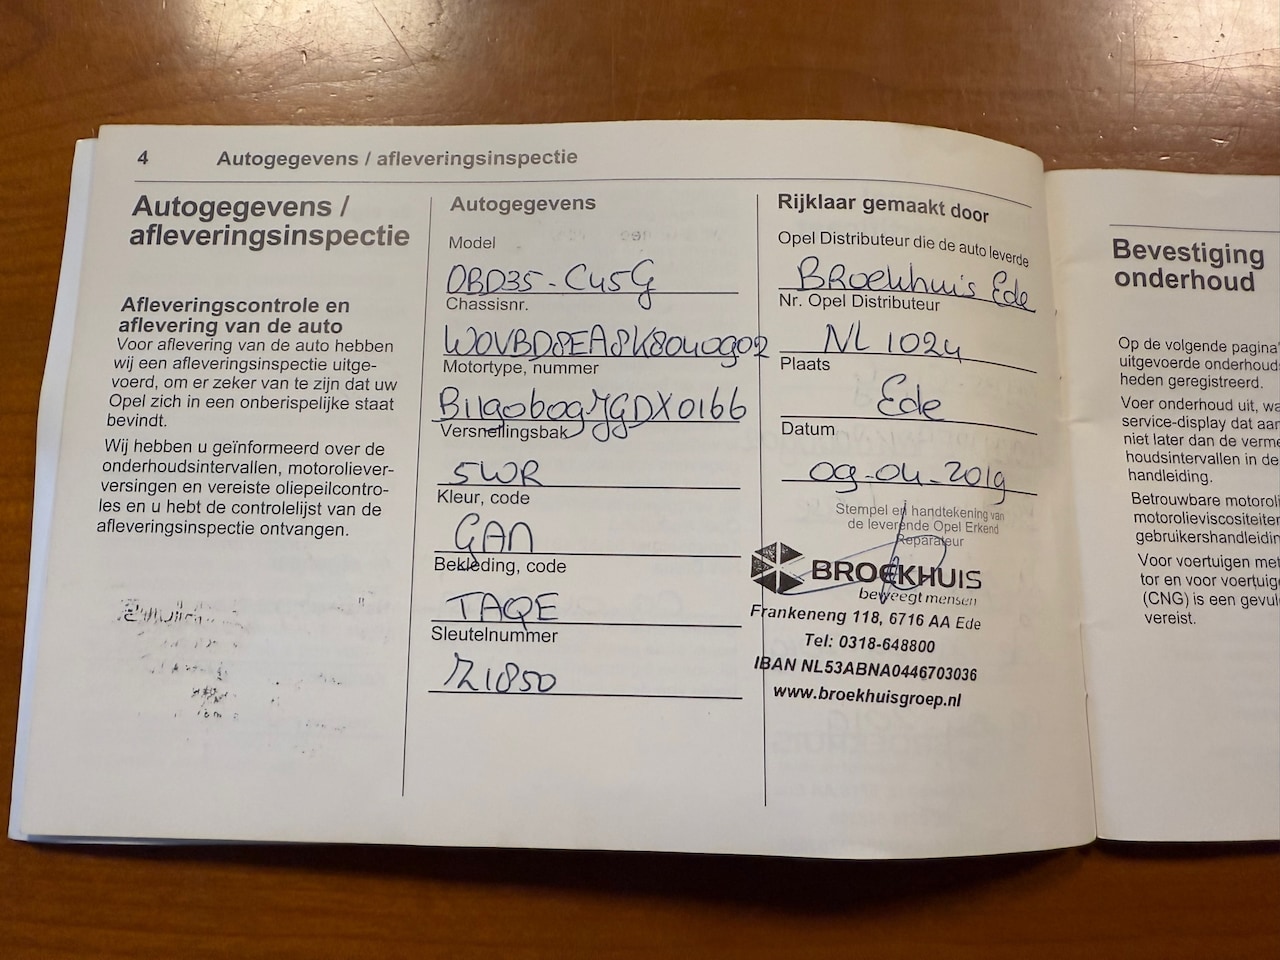 4 Autogegevens / afleveringsinspectie
Autogegevens /
afleveringsinspectie
Afleveringscontrole en
aflevering van de auto
Voor aflevering van de auto hebben
wij een afleveringsinspectie uitge-
voerd, om er zeker van te zijn dat uw
Opel zich in een onberispelijke staat
bevindt.
Wij hebben u geïnformeerd over de
onderhoudsintervallen, motoroliever-
versingen en vereiste oliepeilcontro-
les en u hebt de controlelijst van de
afleveringsinspectie ontvangen.
Autogegevens
Model
OBD35-CU5G
Chassisnr.
W0VBD8EA8K8040902
Motortype, nummer
Versnellingsbak
5WR
Kleur, code
GAN
Bekleding, code
TAQE
Sleutelnummer
Z1850
Rijklaar gemaakt door
Opel Distributeur die de auto leverde
BRoekhuis Ede
Nr. Opel Distributeur
NL 1024
Plaats
Ede
Datum
09-04-2019
Stempel en handtekening van
de leverende Opel Erkend
Reparateur
BROEKHUIS
beweegt mensen
Frankeneng 118, 6716 AA Ede
Tel: 0318-648800
IBAN NL53ABNA0446703036
www.broekhuisgroep.nl
Bevestiging
onderhoud
Op de volgende pagina'
uitgevoerde onderhoud
heden geregistreerd.
Voer onderhoud uit, wa
service-display dat aan
niet later dan de verme
houdsintervallen in de
handleiding.
Betrouwbare motoroli
motorolieviscositeiten
gebruikershandleidin
Voor voertuigen met
tor en voor voertuige
(CNG) is een gevul
vereist.